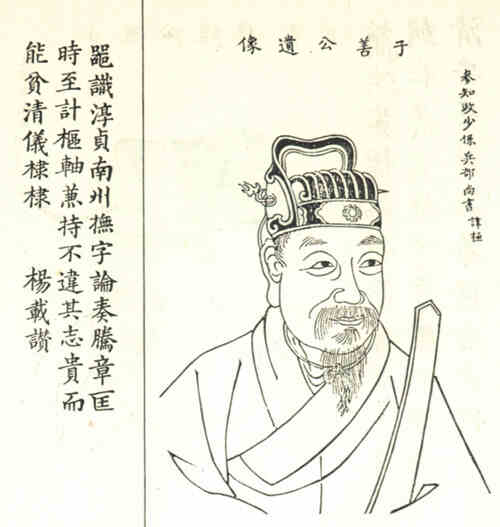 子善公遺像
參知政少保兵部尚書 諱極
噐識淳貞南州撫字論奏騰章匡
時至計樞軸兼持不違其志貴而
能貧清儀棣棣 楊載讚